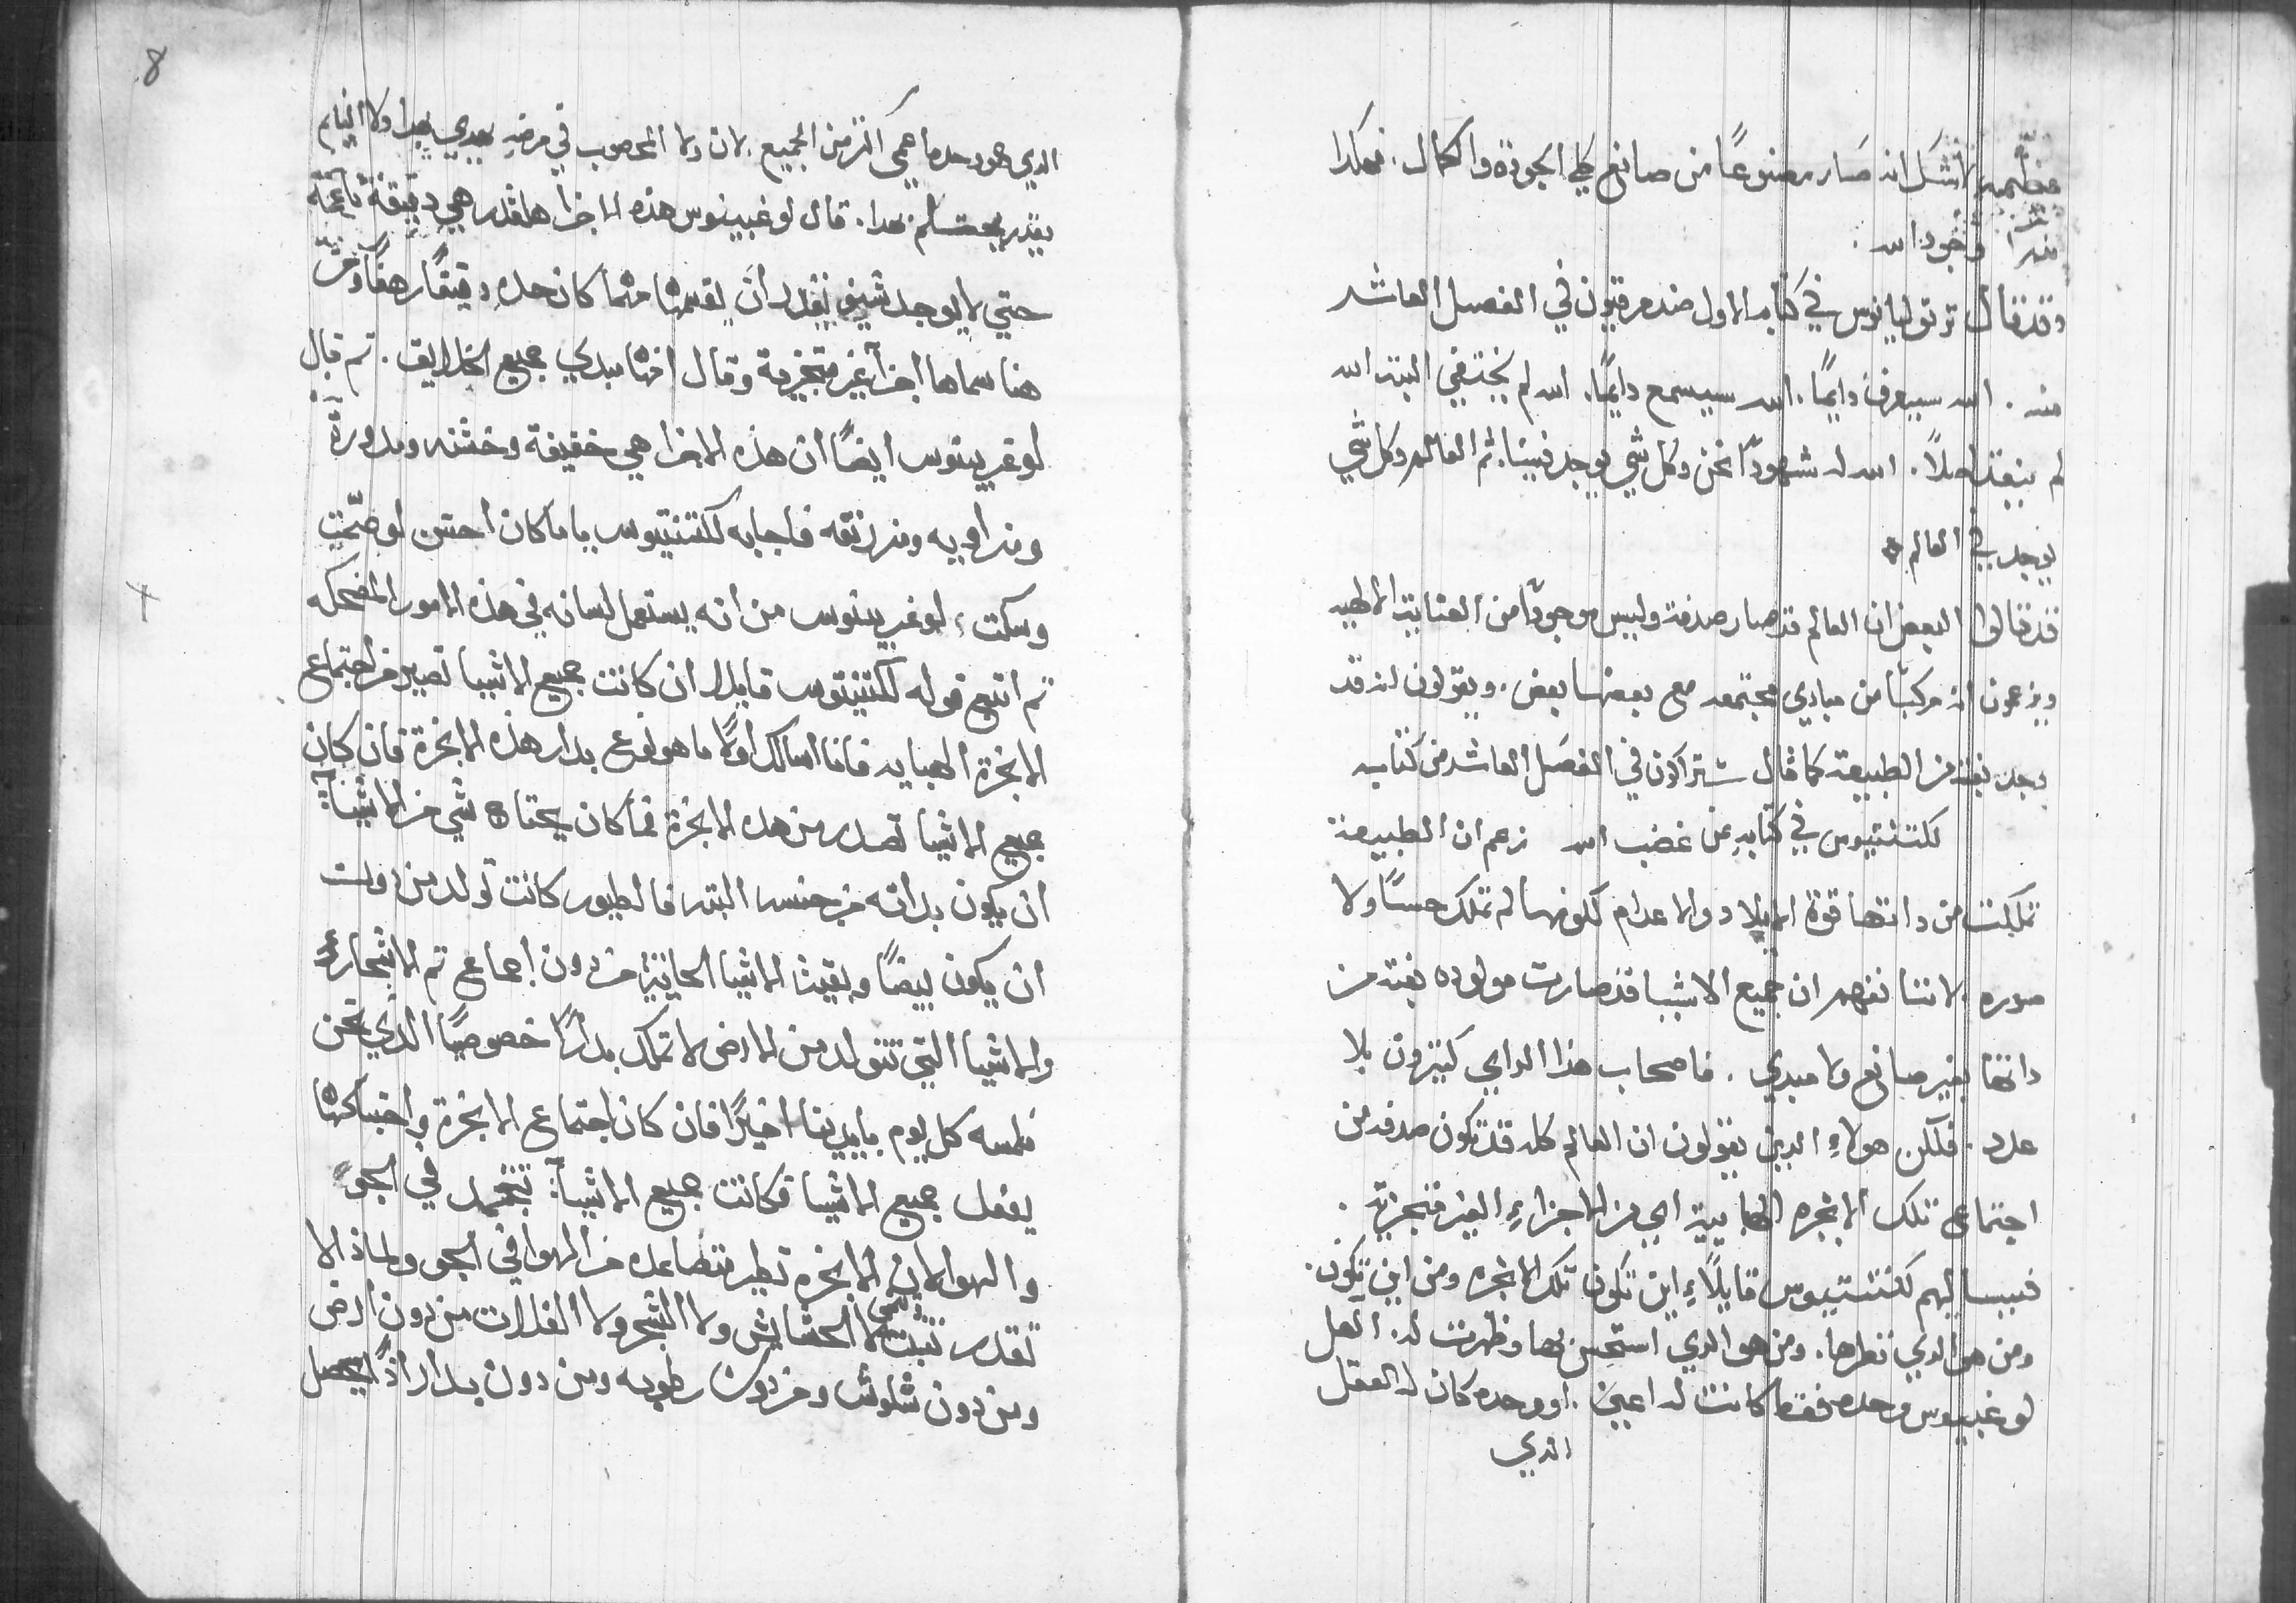 عظيمه لاشك انه صار مصنوعًا من صانع كلي الجودة والكمال. فهكدا
وجود الله.
وقد قال ترتوليانوس في كتابه الاول ضد مرقيون في الفصل العاشر
منه. الله سيعرف دايمًا. الله سيسمع دايمًا. الله لم يختفي البته الله
لم اصلاً. الله له شهودًا نحن وكل شي يوجد فينا ثم العالم وكل شي
يوجد في العالم
قد قالوا البعض ان العالم قد صار صدفة وليس موجودًا من العناية الالهيه
ويزعمون انه مركبًا من مبادي مجتمعه مع بعضها بعض. ويقولون انه قد
وجد بغتة من الطبيعة كما قال ستراكون في الفصل العاشر من كتاب
لكتنتيوس في كتابه عن غضب الله زعم ان الطبيعة
تملكت من داتها قوة الايلاد والاعدام لكونها لم تملك حسًا ولا
صوره لاننا نفهم ان جميع الاشيا قد صارت مولوده بغتة من
داتها بغير صانع ولا مبدي. فاصحاب هذا الراي كثيرون بلا
عدد. فلكن هولاءِ الدين يقولون ان العالم كله قد تكون صدفه من
اجتماع تلك الابخره الهبايية اي من الاجزاءِ الغير متجزية.
فيسالهم لكتنتيوس قايلاً اين تكون تلك الابخره ومن اين تكون.
ومن هو الدي نظرها. ومن هو الدي استحس بها وظهرت له. العل
لوغبينوس وحده فقط كانت له اعين. او وحده كان له العقل
الدي
8
الدي هو وحده اعمي اكثر من الجميع. لان ولا المخصوب في مرضه يهدي بهدا ولا النايم
يقدر يحتسلم بهدا. قال لوغبينوس هذه الاجزا هلقدر هي دقيقة ناعمة
حتي لا يوجد شيفق يقدر ان يقسمها مهما كان حده دقيقًا رهفًا ومن
هنا سماها اجزآ غير متجزية وقال انها مبدي جميع الخلايق. ثم قال
لوغبينوس ايضًا ان هذه الاجزا هي خفيفة وخشنه ومدورة
ومزاويه ومزرنقه فاجابه لكتنتيوس يا ما كان احسن لو صمت
وسكت لوغبينوس من انه يستعمل لسانه في هذه الامور المضحكه
ثم اتبع قوله لكتنتيوس قايلا ان كانت جميع الاشيا تصير من اجتماع
الابخرة الهبايه فانا اسالك اولاً ما هو نوع بدار هذه الابخرة فان كان
جميع الاشيا تصدر من هده الابخرة فما كان يحتاج شي من الاشيآ
ان يكون بداته من جنسه البته فالطيور كانت تولد من دون
ان يكون بيضًا وبقيت الاشيا الحايية من دون اجماع ثم الاشجار
والاشيا التي تتولد من الارض لا تملك بدارًا خصوصيًا الدي نحن
نلمسه كل يوم بايدينا اخيرًا فان كان اجتماع الابخرة واختباكها
يفعل جميع الاشيا فكانت جميع الاشيآ تنجمد في الجو
والهوا لان الابخره تطير متصاعده من الهوا في الجو ولماذا لا
تقدر تنبت وتنمي لا الحشايش ولا الشجر ولا الغلات من دون ارض
ومن دون شلوش ومن دون رطوبه ومن دون بدار اذًا